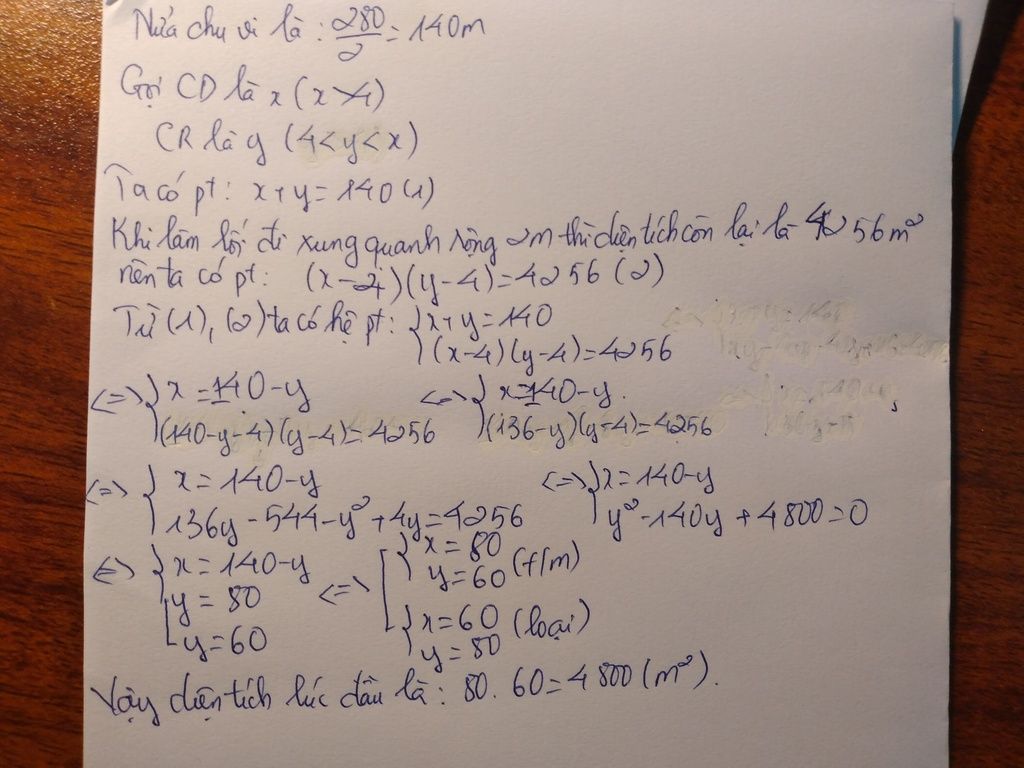 Nửa chu vi là : 280/2 = 140m
Gọi CD là x (x>4)
CR là y (4<y<x)
Ta có pt: x+y=140 (1)
Khi làm lối đi xung quanh rộng 2m thì diện tích còn lại là 4256m²
nên ta có pt: (x-4)(y-4)=4256 (2)
Từ (1), (2) ta có hệ pt: { x+y=140
(x-4)(y-4)=4256
<=> { x=140-y <=> { x=140-y.
(140-y-4)(y-4)=4256 (136-y)(y-4)=4256
<=> { x=140-y <=> { x=140-y
136y-544-y²+4y=4256 y²-140y+4800=0
<=> { x=140-y <=> [ { x=80
y=60 (t/m)
[ y=80
y=60 { x=60 (loại)
y=80
Vậy diện tích lúc đầu là: 80.60=4800(m²).